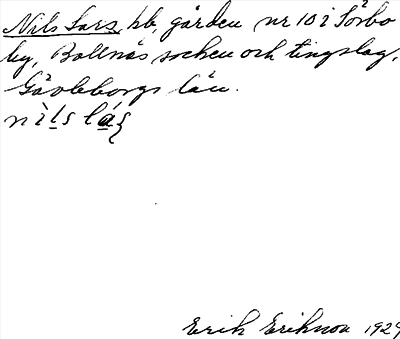 Nils Lars, hb, gården nr 10 i Sörbo
by, Bollnäs socken och tingslag,
Gävleborgs län.
nìls láʂ
Erik Eriksson 1929